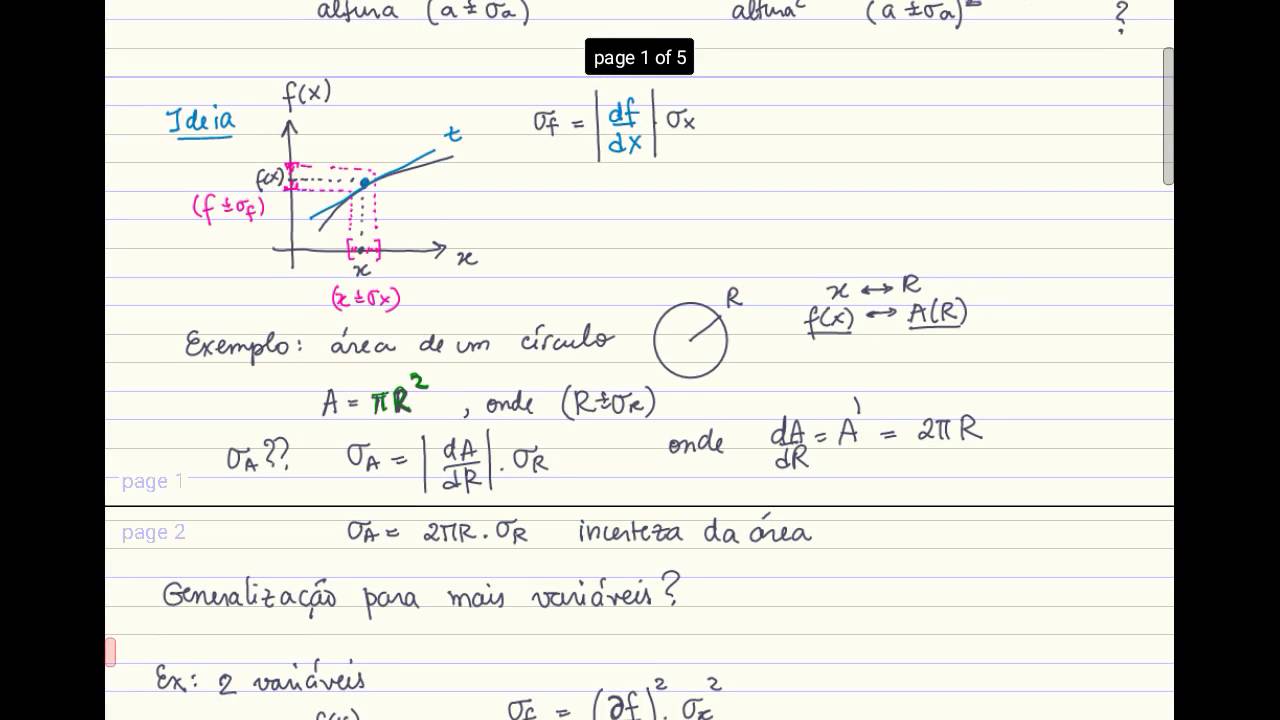 altura (a ± σa) altura² (a ± σa)² ?
page 1 of 5
f(x)
Ideia σf = |df/dx| · σx
t
f(x)
(f ± σf)
x
x
(x ± σx)
x ↔ R
R
f(x) ↔ A(R)
Exemplo: área de um círculo
A = πR², onde (R ± σR)
σA?? σA = |dA/dR| · σR onde dA/dR = A' = 2πR
page 1
page 2
σA = 2πR · σR incerteza da área
Generalização para mais variáveis?
Ex: 2 variáveis
σf = (∂f)² · σx²